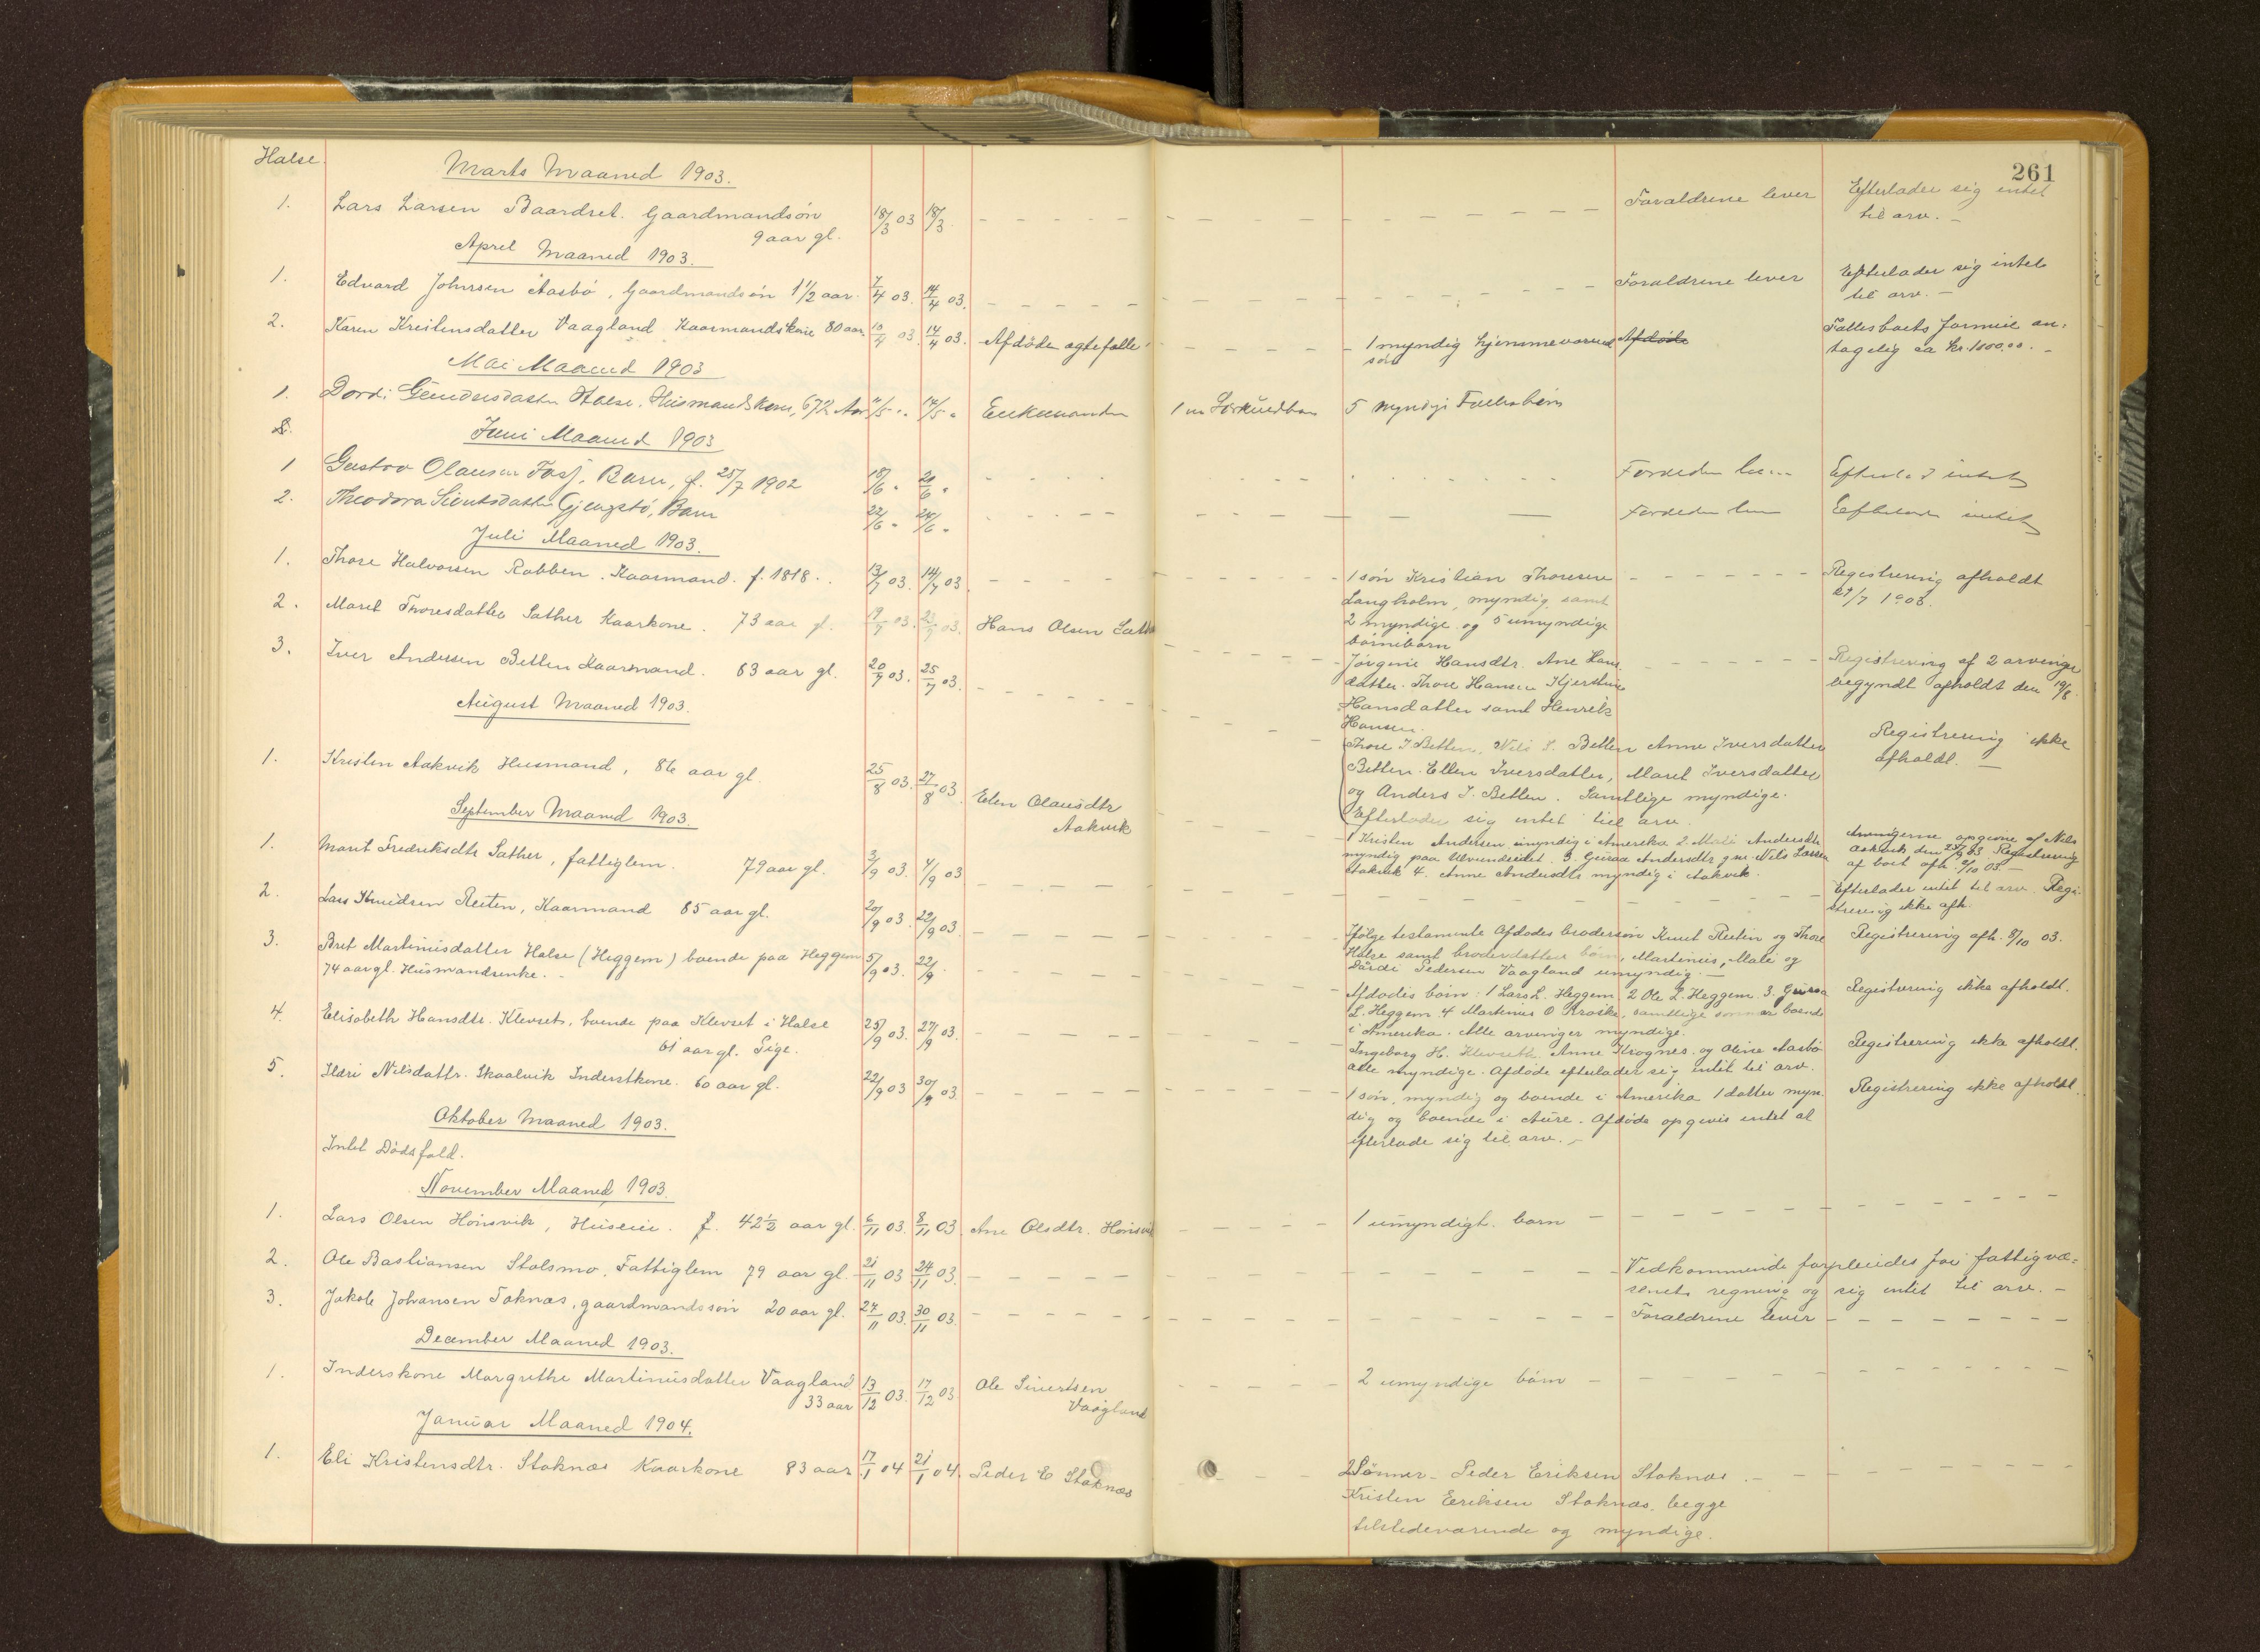 261
Halse.
Marts Maaned 1903.
1. Lars Larsen Baardset. Gaardmandsön 18/3 03 18/3. Forældrene lever Efterlader sig intet
9 aar gl. til arv. –
April Maaned 1903.
1. Edvard Johnsen Aasbö, Gaardmandsön 1 1/2 aar. 7/4 03. 14/4 03. Forældrene lever Efterlader sig intet
til arv. –
2. Karen Kristensdatter Vaagland Kaarmandskone 80 aar. 10/4 03. 14/4 03. Afdödes ægtefælle 1 myndig hjemmeværend Afdöde Fællesboets formue an-
sön tagelig ca kr. 1800.00. –
Mai Maaned 1903
1. Dordi Halse. Husmandskone, 11/5 14/5 Enkemanden 1 m Særkuldbarn 5 myndige Fællesbörn
2.
Juni Maaned 1903
1 Gustav Olausen Barn, f. 25/7 1902 18/6 " 21/6 " Efterlad intet
2. Theodora Sivertsdatter Gjengstö, Barn 22/6 " 24/6 " Efterlader intet
Juli Maaned 1903.
1. Thore Halvorsen Rabben. Kaarmand. f. 1818. 13/7 03. 14/7 03. 1 sön Kristian Thoresen Registrering afholdt
Langholm, myndig samt 27/7 1903.
2 myndige og 5 umyndige
börnebörn
2. Maret Thoresdatter Sæther Kaarkone. 73 aar gl. 19/7 03. 23/7 03. Hans Olsen Sæther
Jörgine Hansdtr. Ane Hans- Registrering af 2 arvinger
datter. Thore Hansen Kjerstine begyndt afholdt den 19/8.
Hansdatter samt Henrik
Hansen.
3. Iver Andersen Betten Kaarmand. 83 aar gl. 20/7 03. 25/7 03.
Thore I Betten, Nils I. Betten Anne Iversdatter Registrering ikke
Betten. Ellen Iversdatter, Maret Iversdatter afholdt. –
og Anders I. Betten. Samtlige myndige.
Efterlader sig intet til arv.
August Maaned 1903.
1. Kristen Aakvik Husmand, 86 aar gl. 25/8 03. 27/8 03. Elen Olausdtr
Aakvik
1 Kristen Andersen, myndig i Amerika 2. Mali Andersdtr Arvingerne opgivne af Nils
myndig paa Ulvundeidet. 3. Guraa Andersdtr g.m. Nils Larsen Aakvik den 25/9 03 Registrering
Aakvik 4. Anne Andersdtr myndig i Aakvik. af boet afh. 2/10 03. –
September Maaned 1903.
1. Marit Fredriksdtr Sæther, fattiglem. 79 aar gl. 3/9 03. 4/9 03 Efterlader intet til arv. Regi-
strering ikke afh.
2. Lars Knudsen Reiten, Kaarmand 85 aar gl. 20/9 03. 22/9 03.
Ifölge testamente Afdödes brodersön Knut Reiten og Thore Registrering afh. 8/10 03.
Halse samt broderdatters börn, Martinus, Mali og
Dårdi Pedersen Vaagland umyndig. –
3. Bret Martinusdatter Halse (Heggem) boende paa Heggem 5/9 03. 22/9.
74 aar gl. Husmandsenke. –
Afdödes börn: 1 Lars L. Heggem 2 Ole L. Heggem. 3. Guroa Registrering ikke afholdt.
L. Heggem. 4 Martinus O samtlige sönner boende
i Amerika. Alle arvinger myndige.
4. Elisabeth Hansdtr. Klevset, boende paa Klevset i Halse 25/9 03. 27/9 03.
61 aar gl. Pige.
Ingeborg H. Klevseth. Anne Krognes. og Oline Aasbö Registrering ikke afholdt.
alle myndige. Afdöde efterlader sig intet til arv.
5. Ildri Nilsdattr. Skaalvik Inderstkone. 60 aar gl. 22/9 03 30/9 03.
1 sön, myndig og boende i Amerika 1 datter myn- Registrering ikke afholdt.
dig og boende i Aure. Afdöde opgives intet at
efterlade sig til arv. –
Oktober Maaned 1903.
Intet Dödsfald.
November Maaned 1903.
1. Lars Olsen Hönsvik, Huseier. f. 42 1/2 aar gl. 6/11 03. 8/11 03. Ane Olsdtr. Hönsvik 1 umyndigt. barn
2. Ole Bastiansen Stolsmo, Fattiglem 79 aar gl. 21/11 03 24/11 03. Vedkommende forpleiedes for fattigvæ-
senets regning og sig intet til arv. –
3. Jakob Johansen Toknæs, gaardmandssön 20 aar gl. 27/11 03. 30/11 03. Forældrene lever
December Maaned 1903.
1. Inderskone Margrethe Martinusdatter Vaagland 13/12 03. 17/12 03 Ole Sivertsen 2 umyndige börn
33 aar Vaagland
Januar Maaned 1904.
1. Eli Kristensdtr. Stoknæs Kaarkone 83 aar 17/1 04 21/1 04. Peder E Stoknæs 2 Sönner – Peder Eriksen Stoknæs.
Kristen Eeriksen Stoknæs, begge
tilstedeværende og myndige.